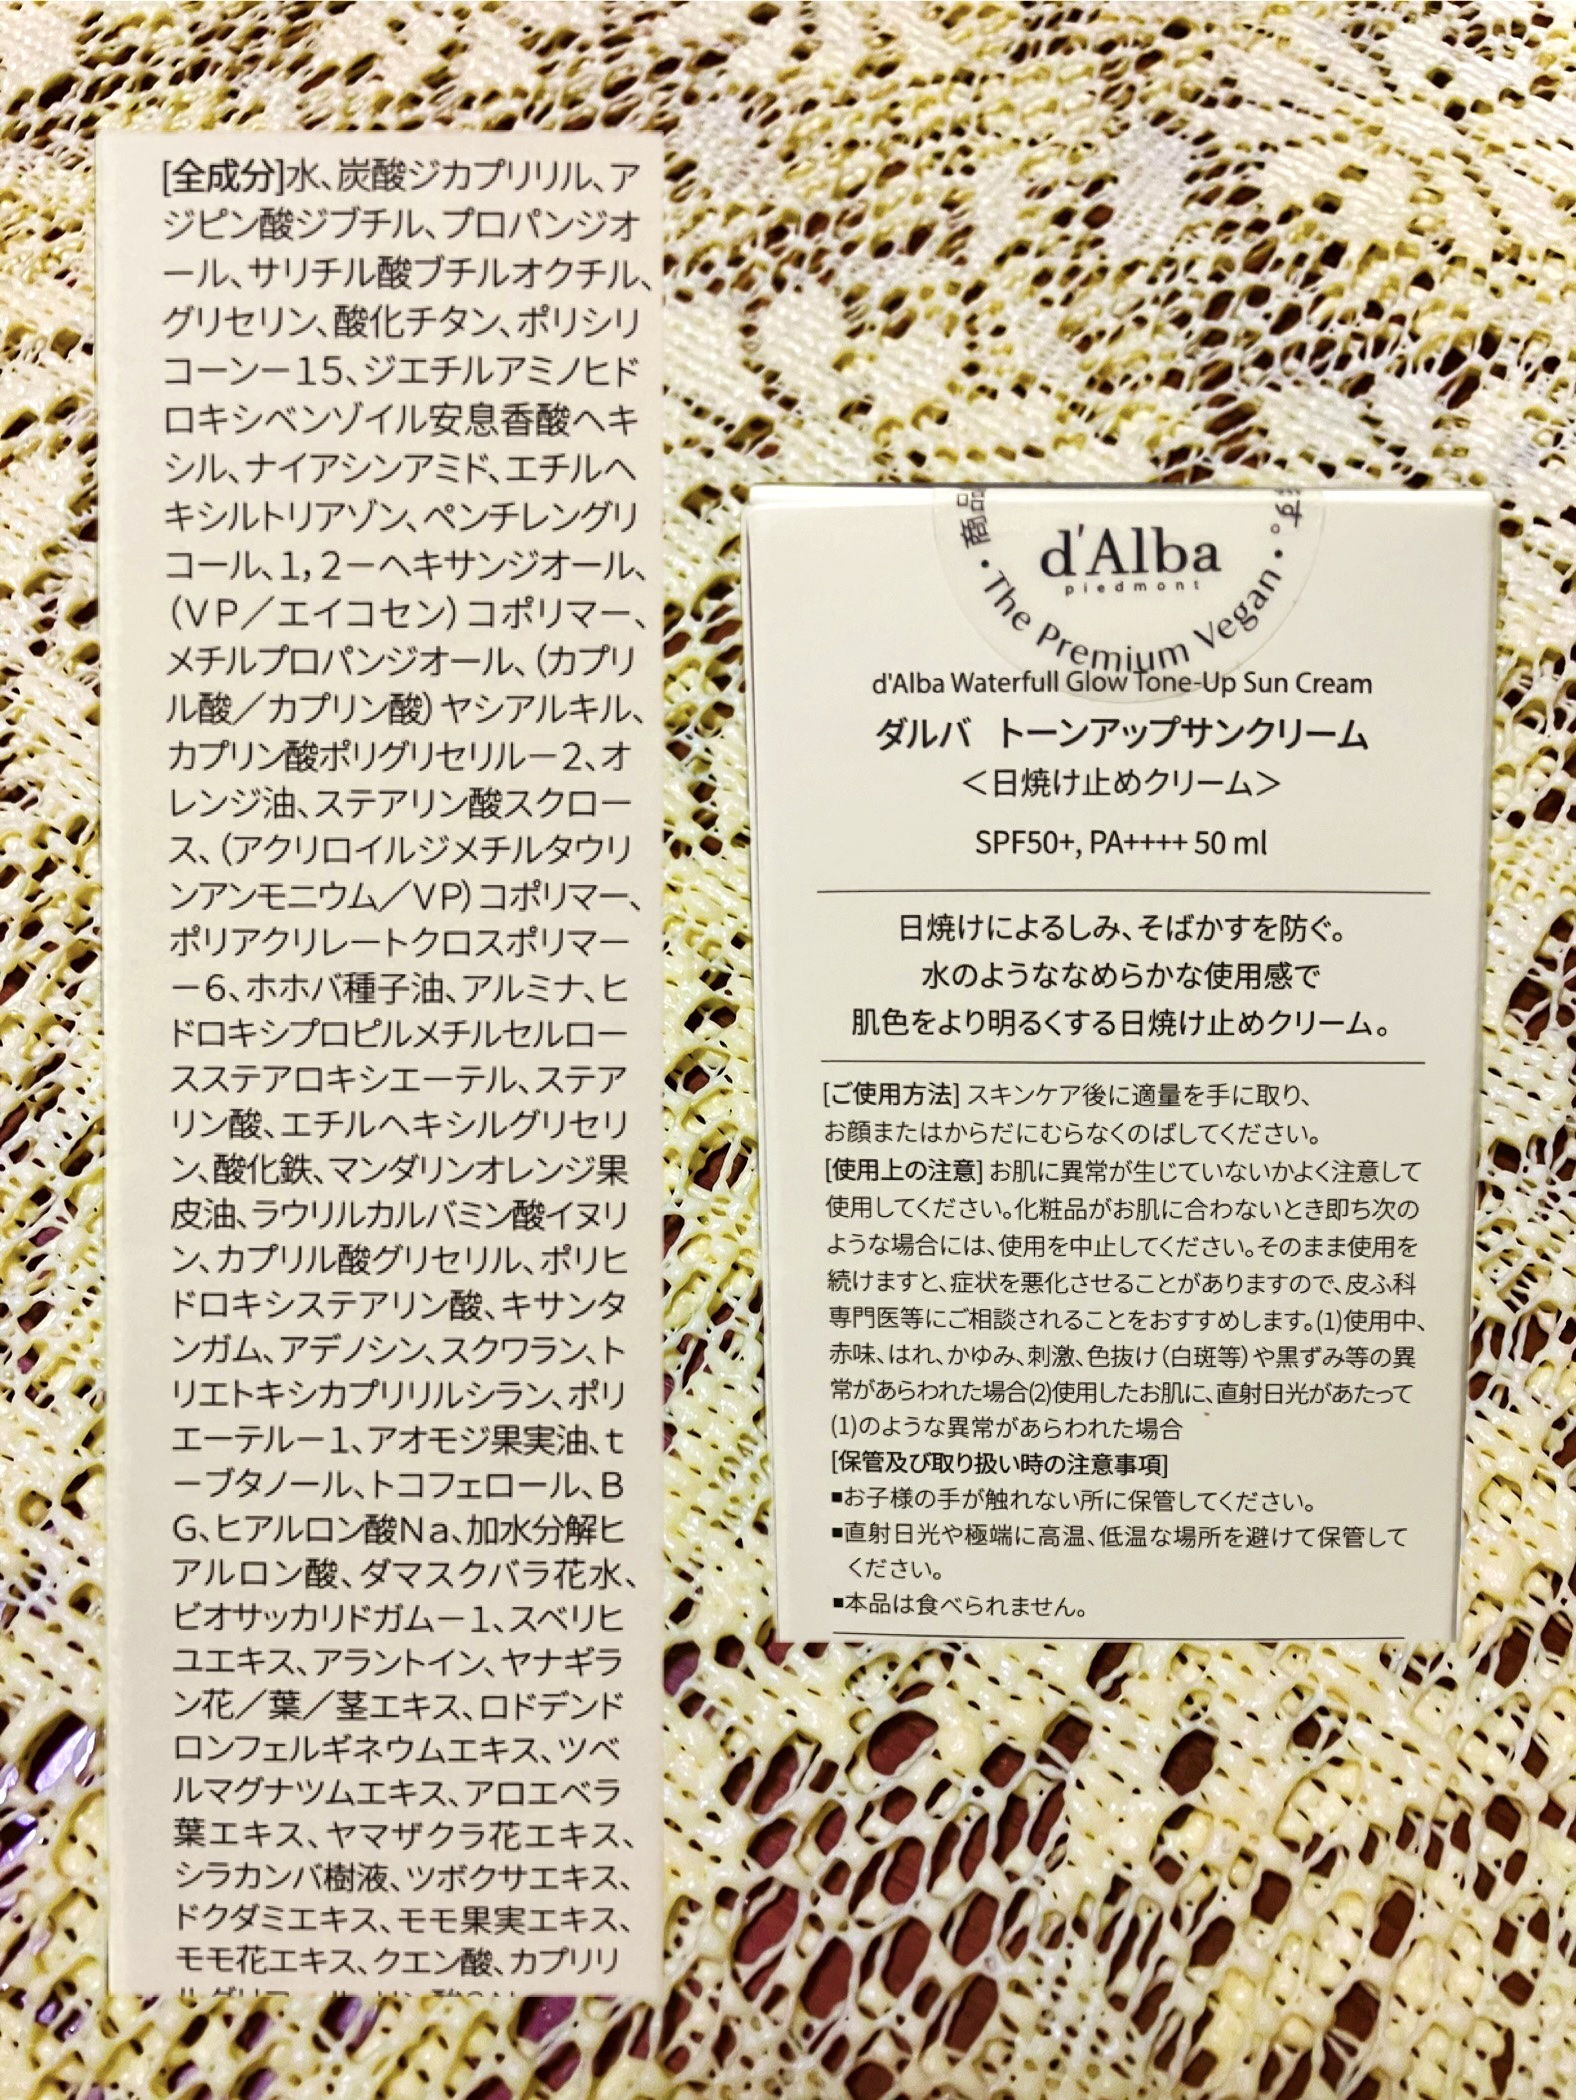 [全成分]水、炭酸ジカプリリル、ア
ジピン酸ジブチル、プロパンジオ
ール、サリチル酸ブチルオクチル、
グリセリン、酸化チタン、ポリシリ
コーン－15、ジエチルアミノヒド
ロキシベンゾイル安息香酸ヘキ
シル、ナイアシンアミド、エチルヘ
キシルトリアゾン、ペンチレングリ
コール、1，2－ヘキサンジオール、
（VP／エイコセン）コポリマー、
メチルプロパンジオール、（カプリ
ル酸／カプリン酸）ヤシアルキル、
カプリン酸ポリグリセリル－2、オ
レンジ油、ステアリン酸スクロー
ス、（アクリロイルジメチルタウリ
ンアンモニウム／VP）コポリマー、
ポリアクリレートクロスポリマー
－6、ホホバ種子油、アルミナ、ヒ
ドロキシプロピルメチルセルロー
スステアロキシエーテル、ステア
リン酸、エチルヘキシルグリセリ
ン、酸化鉄、マンダリンオレンジ果
皮油、ラウリルカルバミン酸イヌリ
ン、カプリル酸グリセリル、ポリヒ
ドロキシステアリン酸、キサンタ
ンガム、アデノシン、スクワラン、ト
リエトキシカプリリルシラン、ポリ
エーテル－1、アオモジ果実油、t
－ブタノール、トコフェロール、B
G、ヒアルロン酸Na、加水分解ヒ
アルロン酸、ダマスクバラ花水、
ビオサッカリドガム－1、スベリヒ
ユエキス、アラントイン、ヤナギラ
ン花／葉／茎エキス、ロドデンド
ロンフェルギネウムエキス、ツベ
ルマグナツムエキス、アロエベラ
葉エキス、ヤマザクラ花エキス、
シラカンバ樹液、ツボクサエキス、
ドクダミエキス、モモ果実エキス、
モモ花エキス、クエン酸、カプリリ
商品
す。
d'Alba
piedmont
・The Premium Vegan・
d'Alba Waterfull Glow Tone-Up Sun Cream
ダルバ　トーンアップサンクリーム
＜日焼け止めクリーム＞
SPF50+, PA++++ 50 ml
日焼けによるしみ、そばかすを防ぐ。
水のようななめらかな使用感で
肌色をより明るくする日焼け止めクリーム。
[ご使用方法] スキンケア後に適量を手に取り、
お顔またはからだにむらなくのばしてください。
[使用上の注意] お肌に異常が生じていないかよく注意して
使用してください。化粧品がお肌に合わないとき即ち次の
ような場合には、使用を中止してください。そのまま使用を
続けますと、症状を悪化させることがありますので、皮ふ科
専門医等にご相談されることをおすすめします。(1)使用中、
赤味、はれ、かゆみ、刺激、色抜け（白斑等）や黒ずみ等の異
常があらわれた場合(2)使用したお肌に、直射日光があたって
(1)のような異常があらわれた場合
[保管及び取り扱い時の注意事項]
■お子様の手が触れない所に保管してください。
■直射日光や極端に高温、低温な場所を避けて保管して
ください。
■本品は食べられません。